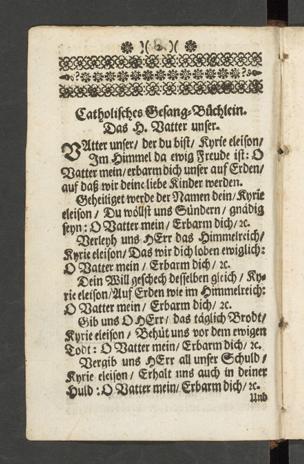 Catholisches Gesang-Büchlein.
Das H. Vatter unser.
VAtter unser/ der du bist/ Kyrie eleison/
Im Himmel da ewig Freude ist: O
Vatter mein/ erbarm dich unser auf Erden/
auf daß wir deine liebe Kinder werden.
Geheiliget werde der Namen dein/ Kyrie
eleison / Du wöllst uns Sündern / gnädig
seyn: O Vatter mein/ Erbarm dich/ ꝛc.
Verleyh uns HErr das Himmelreich/
Kyrie eleison/ Das wir dich loben ewiglich:
O Vatter mein / Erbarm dich/ ꝛc.
Dein Will geschech desselben gleich / Ky-
rie eleison/ Auf Erden wie im Himmelreich:
O Vatter mein / Erbarm dich / ꝛc.
Gib uns O HErr/ das täglich Brodt/
Kyrie eleison / Behüt uns vor dem ewigen
Todt: O Vatter mein/ Erbarm dich/ ꝛc.
Vergib uns HErr all unser Schuld /
Kyrie eleison / Erhalt uns auch in deiner
Huld: O Vatter mein/ Erbarm dich/ ꝛc.
Und